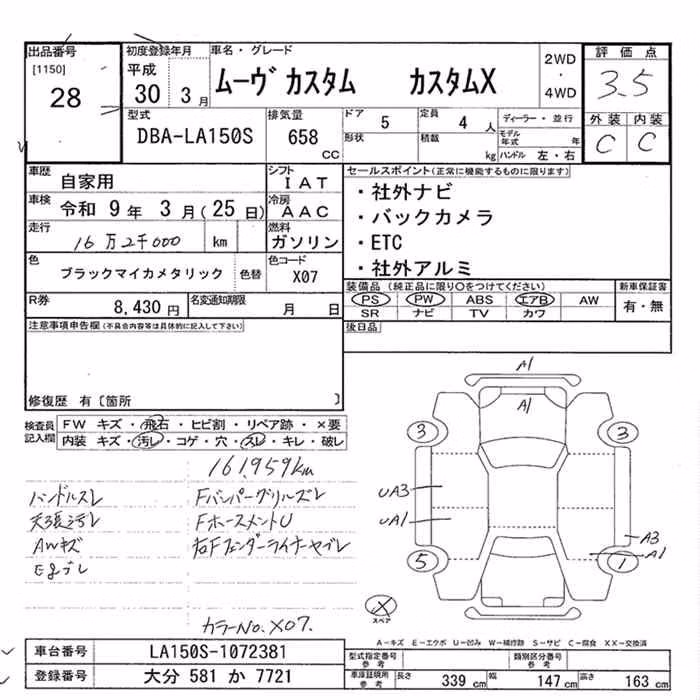 出品番号
[1150]
28
初度登録年月
平成
30 3月
車名・グレード
ムーヴ カスタム カスタムX
2WD
・
4WD
評価点
3.5
外装 内装
C C
型式
DBA-LA150S
排気量
658
CC
ドア 5
定員 4人
形状
積載 kg
ディーラー・並行
モデル年式 年
ハンドル 左・右
車歴
自家用
シフト
IAT
車検
令和 9年 3月(25日)
冷房
AAC
走行
16万2千000 km
燃料
ガソリン
色
ブラックマイカメタリック
色替
色コード
X07
R券
8,430円
名変通知期限
月 日
セールスポイント(正常に機能するものに限ります)
・社外ナビ
・バックカメラ
・ETC
・社外アルミ
装備品(純正品に限り○をつけてください)
PS PW ABS エアB AW
SR ナビ TV カワ
新車保証書
有・無
後日品
注意事項申告欄(不具合内容等は具体的に記入して下さい)
修復歴 有〔箇所 〕
検査員記入欄
FW キズ・飛石・ヒビ割・リペア跡・×要
内装 キズ・汚レ・コゲ・穴・スレ・キレ・破レ
161,959km
ハンドルスレ
Fバンパーグリルズレ
天張汚レ
FホースメントU
AWキズ
右Fフェンダーライナーヤブレ
カラーNo.X07.
A1
A1
3 3
UA3
UA1
A3
A1
5 1
×
スペア
A-キズ E-エクボ U-凹み W-補修跡 S-サビ C-腐食 XX-交換済
車台番号
LA150S-1072381
登録番号
大分 581 か 7721
型式指定番号
参考
類別区分番号
参考
車庫証明用
参考
長さ 339 cm
幅 147 cm
高さ 163 cm